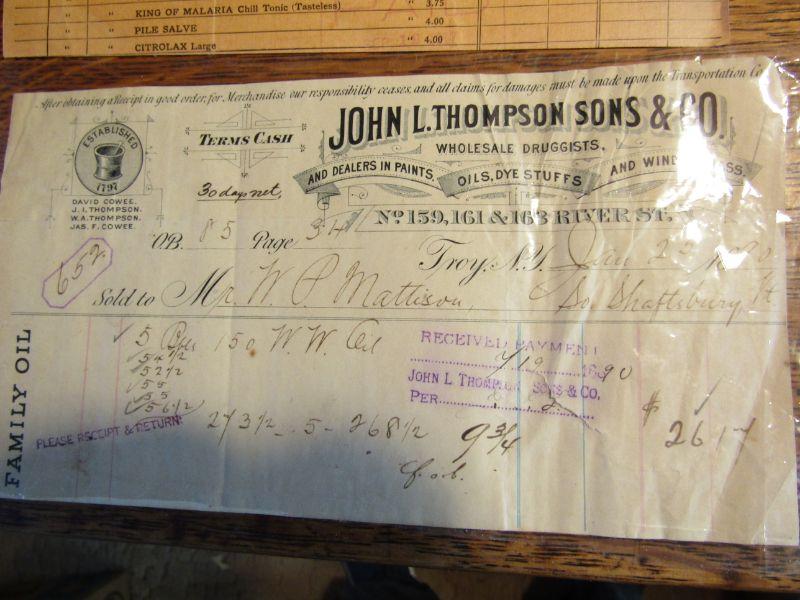 KING OF MALARIA Chill Tonic (Tasteless) " 3.75
" " PILE SALVE " 4.00
" " CITROLAX Large " 4.00
After obtaining a Receipt in good order, for Merchandise our responsibility ceases, and all claims for damages must be made upon the Transportation Co.
ESTABLISHED
1797
DAVID COWEE.
J. I. THOMPSON.
W. A. THOMPSON.
JAS. F. COWEE.
TERMS CASH
30 days net,
JOHN L. THOMPSON SONS & CO.
WHOLESALE DRUGGISTS,
AND DEALERS IN PAINTS, OILS, DYE STUFFS AND WINDOW GLASS.
No 159, 161 & 163 RIVER ST.
O.B. 85 Page 34
652
Troy, N.Y. Jan 90
Sold to Mr W. P. Mattison, So. Shaftsbury, Vt
5 Bbls 150 W. W. Oil
54 1/2
52 1/2
55
55
56 1/2
273 1/2 - 5 - 268 1/2 9 3/4 $ 26 17
f.o.b.
RECEIVED PAYMENT
1890
JOHN L THOMPSON SONS & CO.
PER
PLEASE RECEIPT & RETURN
FAMILY OIL